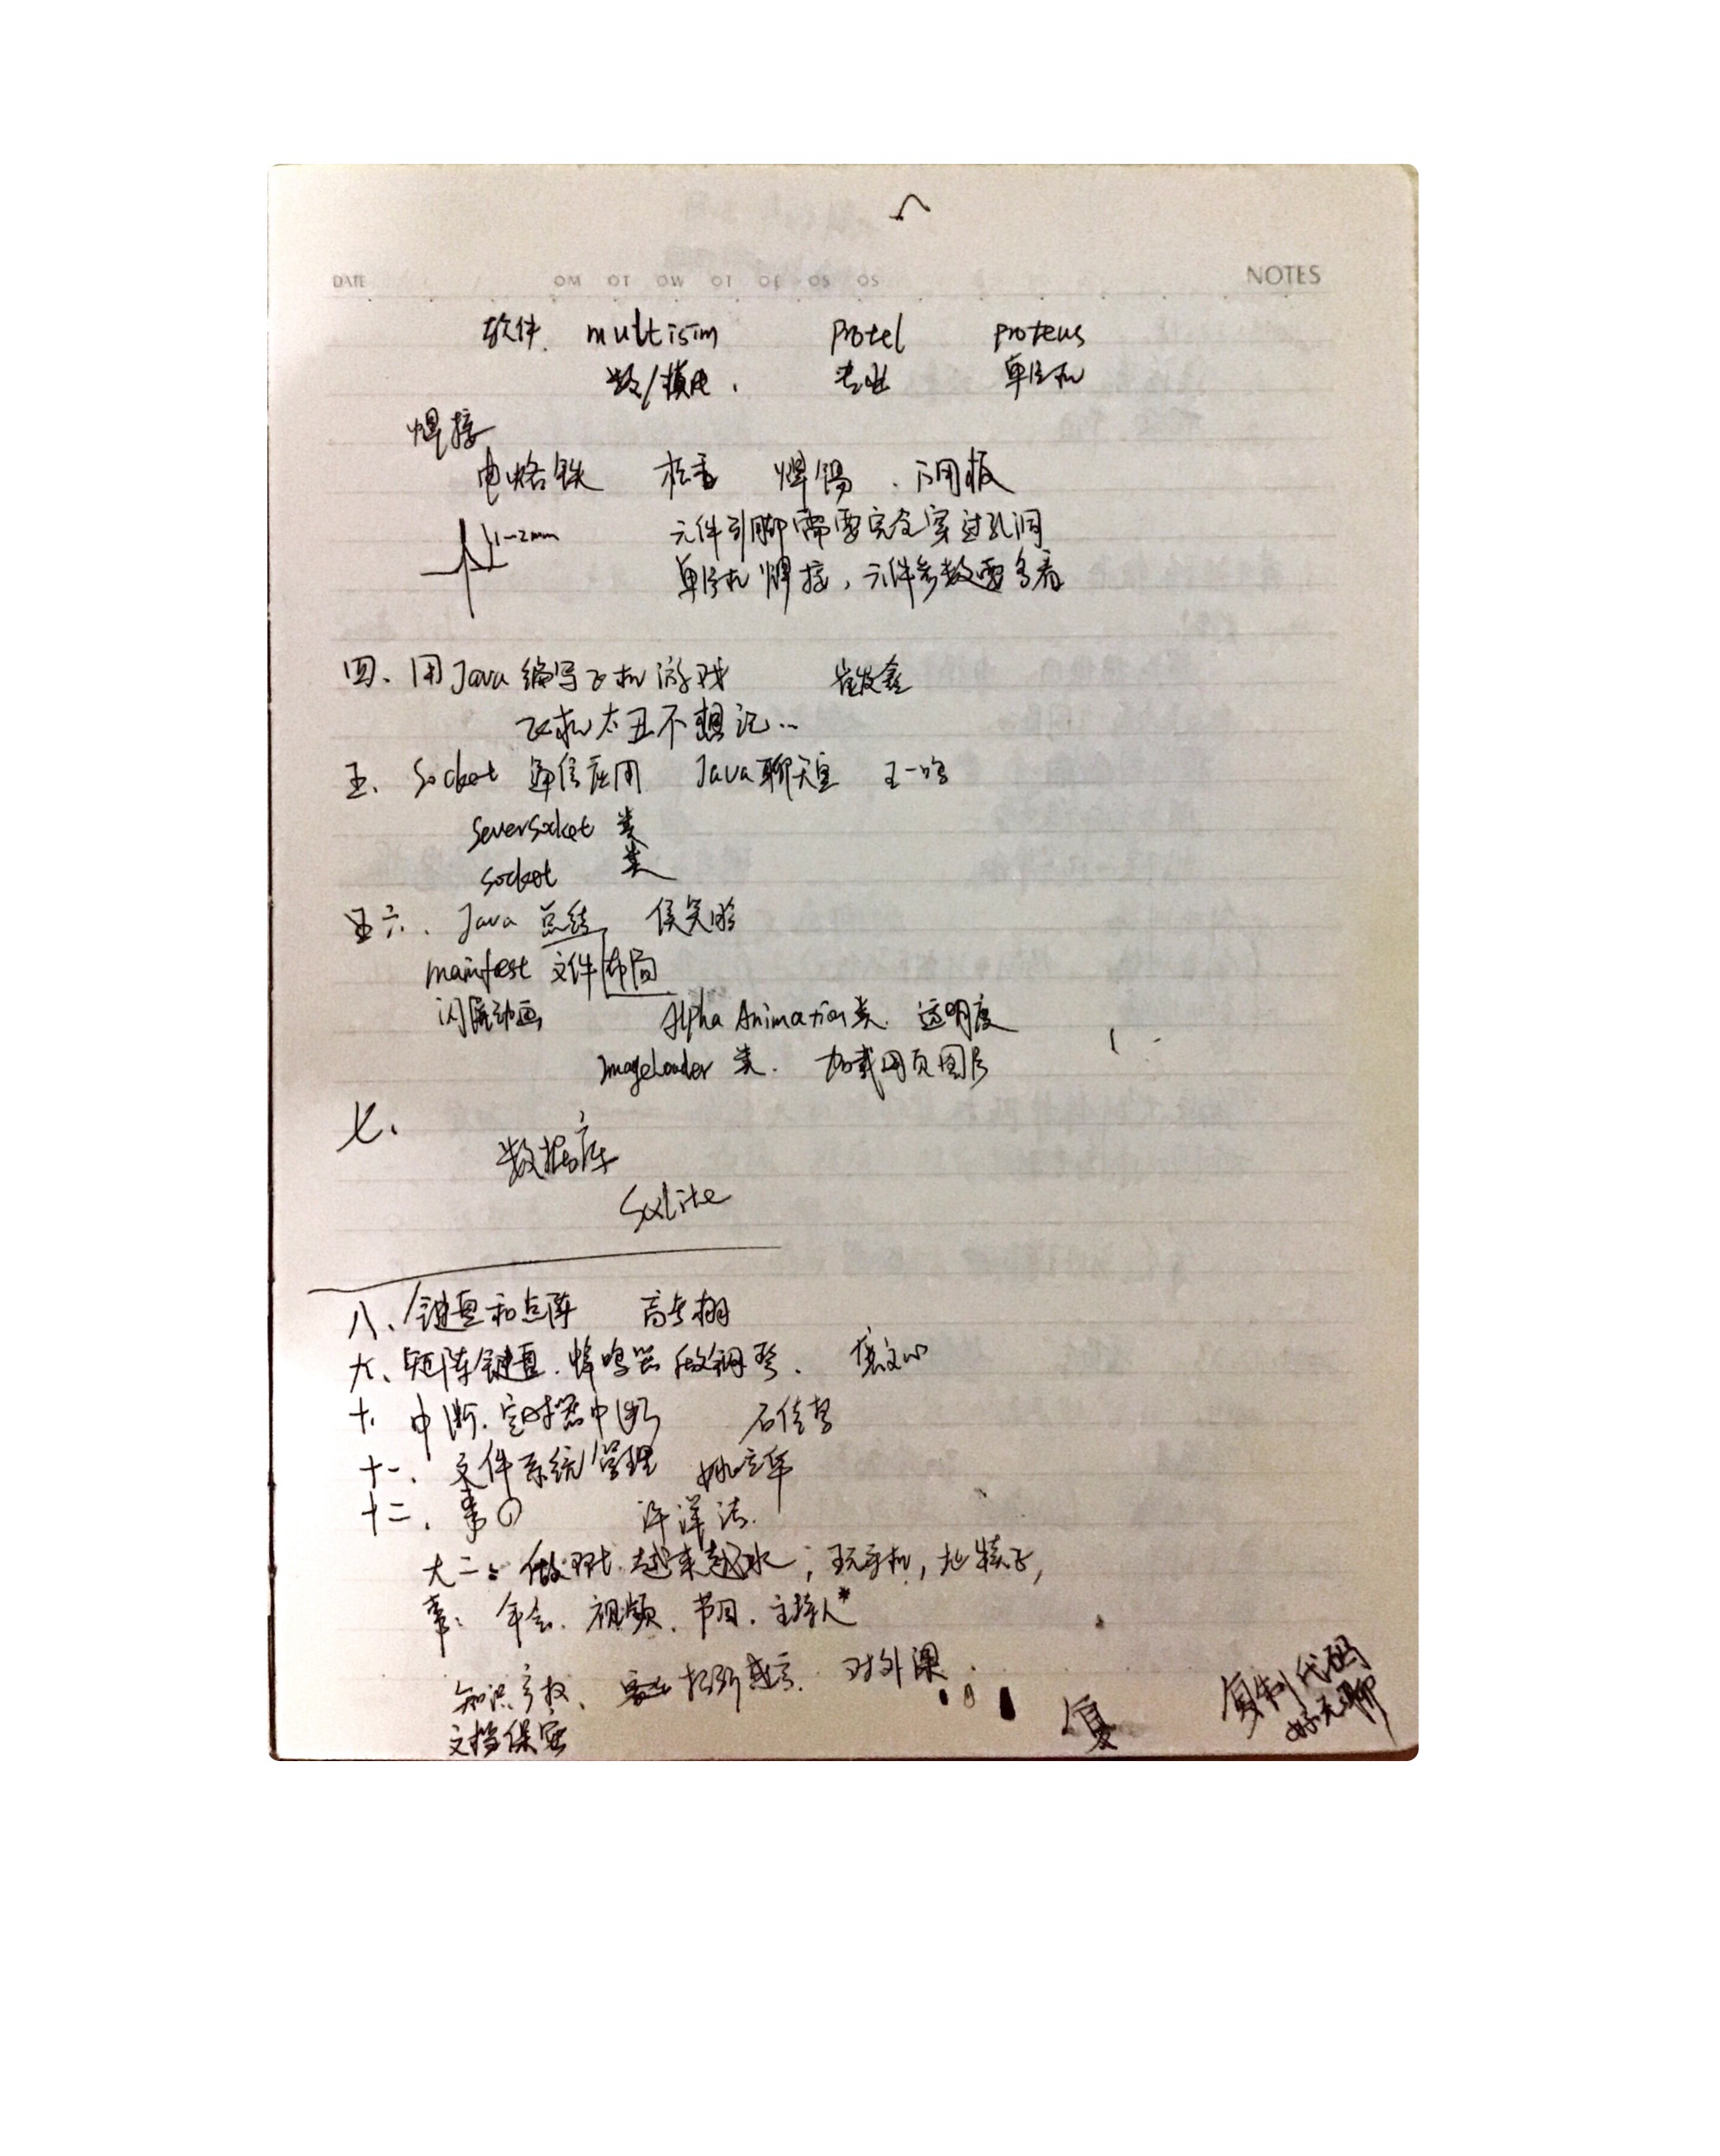 DATE MO TO WO TO FO SO SO NOTES
软件. multisim protel proteus
数/模电. 专业 单片机
焊接
电烙铁 松香 焊锡 . 万用板
1-2mm 元件引脚需要完全穿过孔洞
单片机焊接, 元件参数要多看
四、用Java编写飞机游戏 崔发鑫
飞机太丑不想记...
五、Socket 通信应用 Java聊天室 王一鸣
SeverSocket 类
socket 类
六、Java 总结 侯笑晗
mainfest 文件 布局
闪屏动画 Alpha Animation类. 透明度
ImageLoader 类. 加载网页图片
七、
数据库
Sqlite
八、键盘和点阵
九、矩阵键盘.蜂鸣器做钢琴.
十. 中断.定时器中断 石佳
十一. 文件系统管理 姚
十二. 许洋洁.
大二: 越来越水, 玩手机,
事: 年会. 视频. 节目. 主持人*
知识产权、 对外课.
文档保密
复
复制代码
好无聊